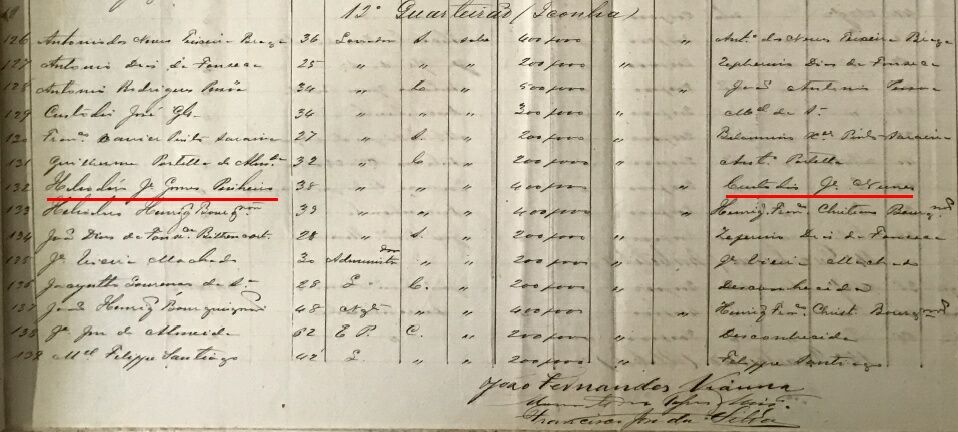 12º Quarteirão (Iconha)
126 Antonio das Neves Teixeira Braga 36 Lavrador S. sabe 400$000 " Antº das Neves Teixeira Braga
127 Antonio Dias da Fonseca 25 " " " 200$000 " Zepherino Dias da Fonseca
128 Antonio Rodrigues 34 " C " 500$000 " João Antonio
129 Custodio José Glz. 34 " " " 300$000 " Mel de Sª
130 Franco Xavier Pinto Saraiva 27 " S. " 200$000 " Belarmino Xer Pinto Saraiva
131 Guilherme Portella de Almda 32 " C " 200$000 " Antº Portella
132 Heliodoro Je Gomes Pinheiro 38 " " " 400$000 " Custodio Je Nunes
133 Heliodoro Henriq Bourgnon 33 " " " 400$000 " Henriq Franco Christiano Bourgnon
134 João Dias da Fonsca Bittencort. 28 " S. " 200$000 " Zeferino Dias da Fonseca
135 Je Vieira Machado 30 Administrador " " 200$000 " Je Vieira Machado
136 Jacyntho Lourenço de Sª 28 L C. " 200$000 " Desconhecido
137 João Henriq Bourguignon 48 Negte " " 200$000 " Henriq Franco Christ. Bourgnon
138 Je Jm de Almeida 62 E. P. C. " 200$000 " Desconhecido
139 Mel Felippe Santiago 42 L. " " 200$000 " Felippe Santiago
João Fernandes Vianna
Francisco José da Silva